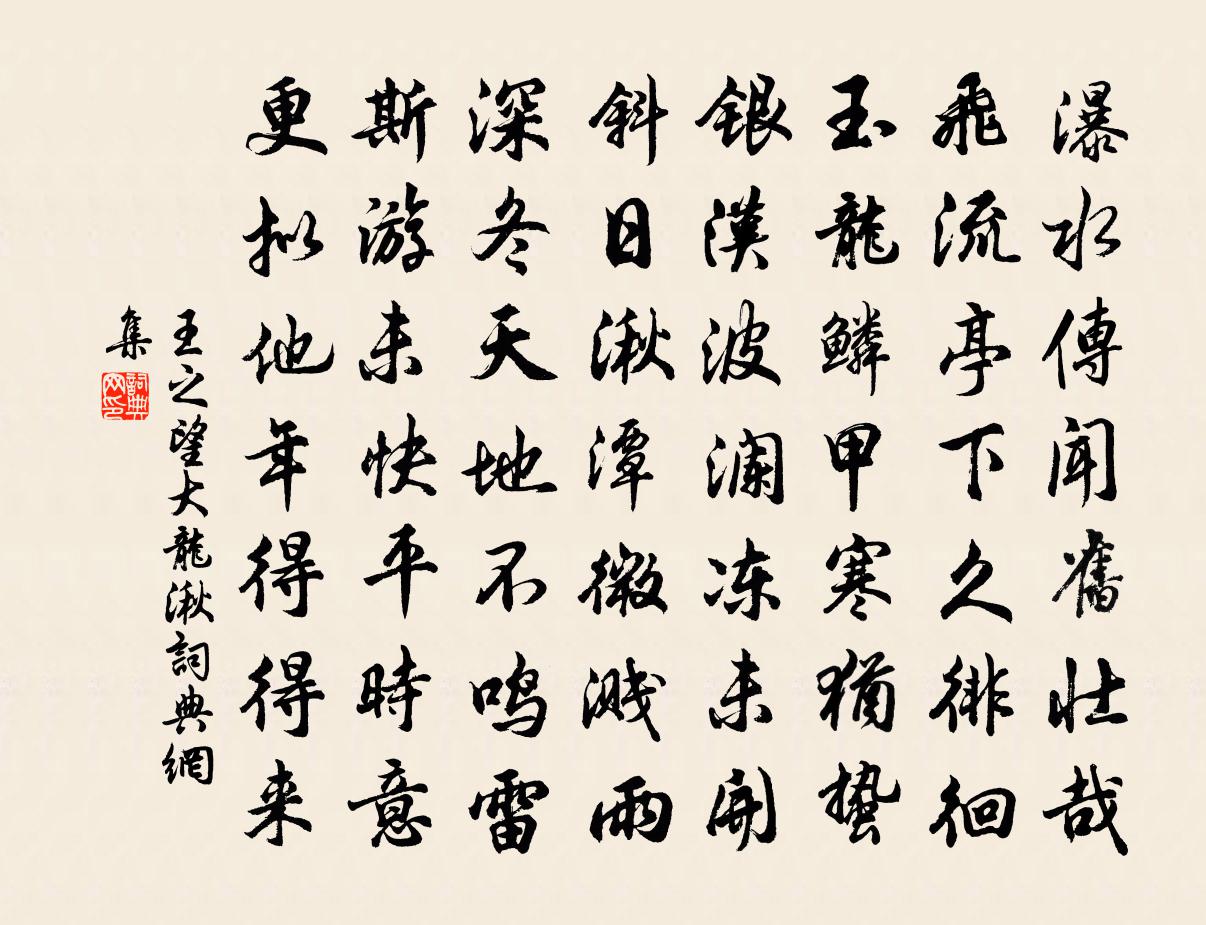 瀑水傳聞舊壯哉
飛流亭下久徘徊
玉龍鱗甲寒猶蟄
銀漢波澜冻未開
斜日湫潭微溅雨
深冬天地不鸣雷
斯游未快平時意
更拟他年得得来
王之望大龍湫詞典網
集
詞典网印